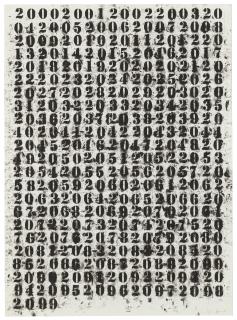 200020012002200320
042005200620072008
200920102011201220
132014201520162017
201820192020202120
222023202420252026
202720282029203020
312032203320342035
203620372038203920
402041204220432044
204520462047204820
492050205120522053
205420552056205720
582059206020612062
206320642065206620
672068206920702071
207220732074207520
762077207820792080
208120822083208420
852086208720882089
209020912092209320
942095209620972098
2099